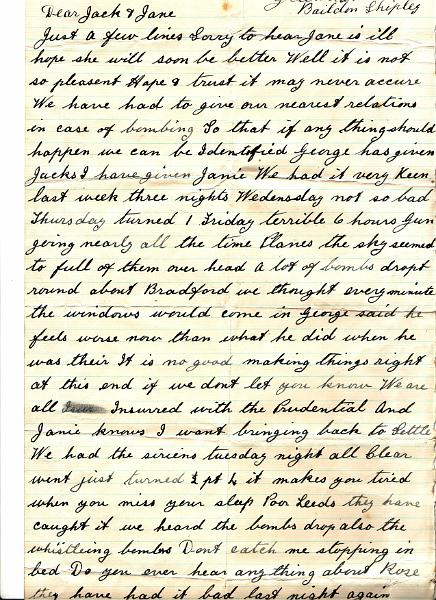 Baildon Shipley
Dear Jack & Jane
Just a few lines Sorry to hear Jane is ill
hope she will soon be better Well it is not
so pleasent Hope & trust it may never accure
We have had to give our nearest relations
in case of bombing So that if any thing should
happen we can be Identefied George has given
Jacks I have given Janie We had it very Keen
last week three nights Wedensday not so bad
Thursday turned 1 Friday terrible 6 hours Gun
going nearly all the time Planes the sky seemed
to full of them over head A lot of bombs dropt
round about Bradford we thought every minute
the windows would come in George said he
feels worse now than what he did when he
was their It is no good making things right
at this end if we dont let you know We are
all Insurred with the Prudential And
Janie knows I want bringing back to Settle
We had the siriens tuesday night all Clear
went just turned ½ pt 4 it makes you tired
when you miss your sleep Poor Leeds they have
caught it we heard the bombs drop also the
whistleing bombs Dont catch me stopping in
bed Do you ever hear any thing about Rose
they have had it bad last night again